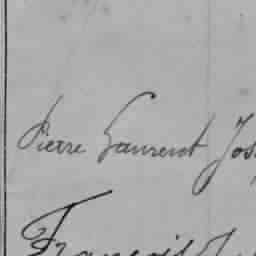 Pierre Laurent Jos
François J